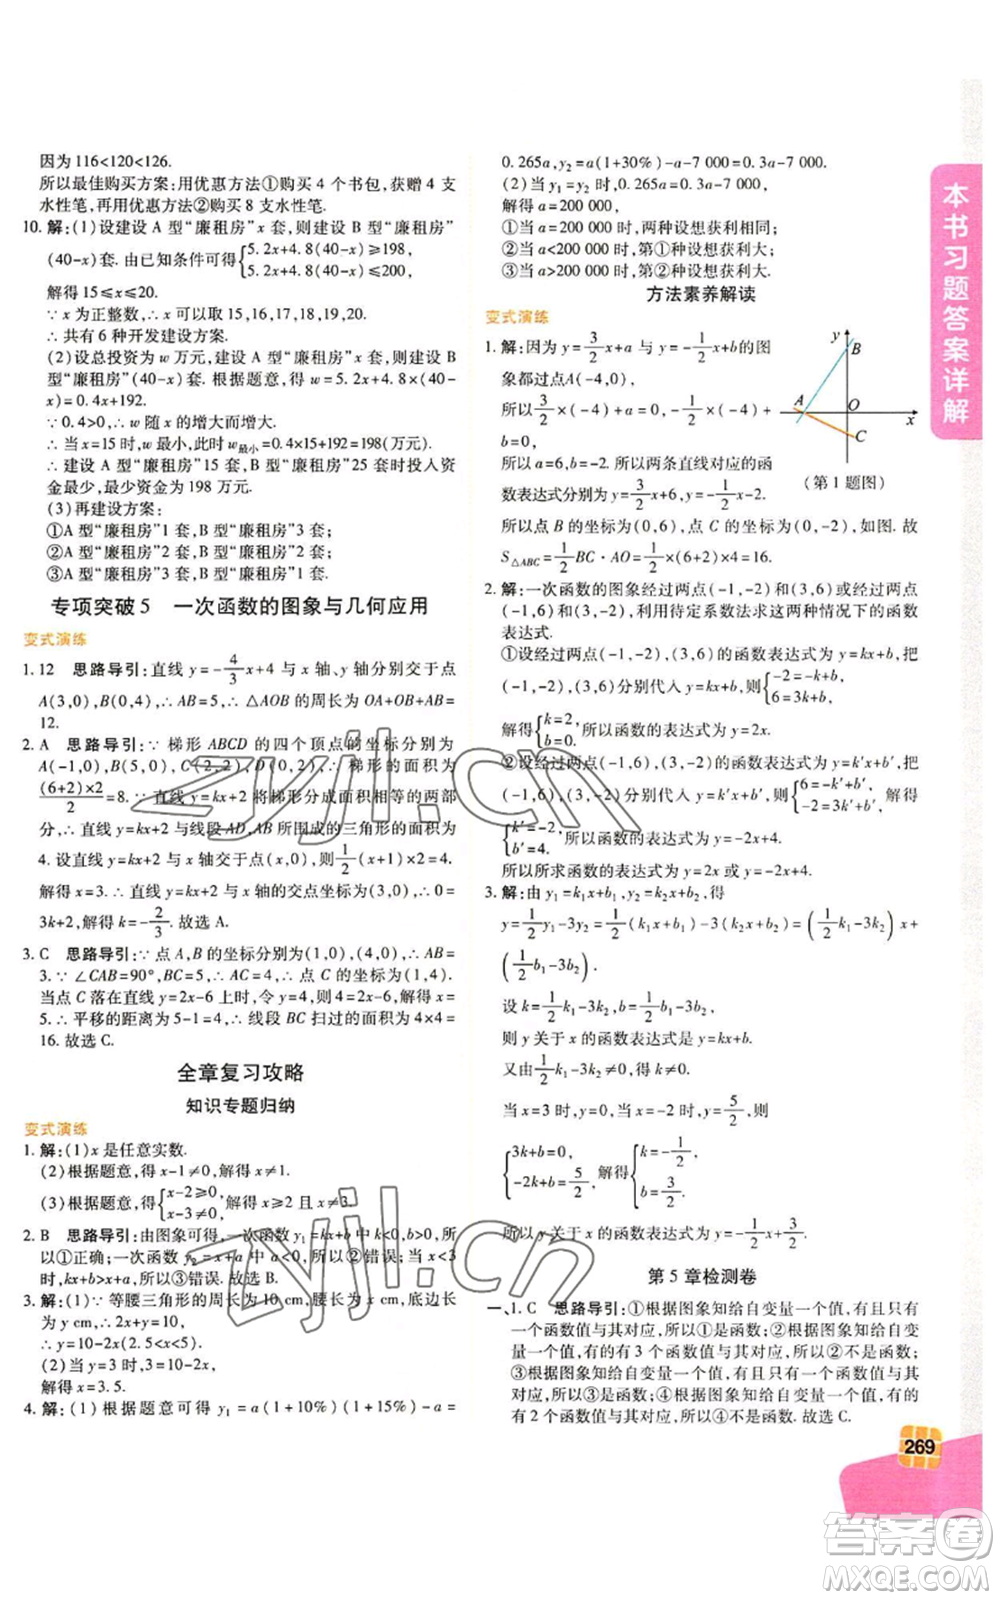 因为116<120<126.
所以最佳购买方案:用优惠方法①购买4个书包,获赠4支
水性笔,再用优惠方法②购买8支水性笔.
10. 解:(1)设建设A型“廉租房”x套,则建设B型“廉租房”
(40-x)套.由已知条件可得{5.2x+4.8(40-x)≥198,
5.2x+4.8(40-x)≤200,
解得15≤x≤20.
∵x为正整数,∴x可以取15,16,17,18,19,20.
∴共有6种开发建设方案.
(2)设总投资为w万元,建设A型“廉租房”x套,则建设B
型“廉租房”(40-x)套.根据题意,得w=5.2x+4.8(40-
x)=0.4x+192.
∵0.4>0,∴w随x的增大而增大.
∴当x=15时,w最小,此时w最小=0.4×15+192=198(万元).
∴建设A型“廉租房”15套,B型“廉租房”25套时投入资
金最少,最少资金为198万元.
(3)再建设方案:
①A型“廉租房”1套,B型“廉租房”3套;
②A型“廉租房”2套,B型“廉租房”2套;
③A型“廉租房”3套,B型“廉租房”1套.
专项突破5 一次函数的图象与几何应用
变式演练
1. 12 思路导引:直线y=-4/3x+4与x轴、y轴分别交于点
A(3,0),B(0,4),∴AB=5,∴△AOB的周长为OA+OB+AB=
12.
2. A 思路导引:∵梯形ABCD的四个顶点的坐标分别为
A(-1,0),B(5,0),C(2,2),D(0,2),∴梯形的面积为
(6+2)×2/2=8.∵直线y=kx+2将梯形分成面积相等的两部
分,∴直线y=kx+2与线段AD,AB所围成的三角形的面积为
4.设直线y=kx+2与x轴交于点(x,0),则1/2(x+1)×2=4.
解得x=3.∴直线y=kx+2与x轴的交点坐标为(3,0),∴0=
3k+2,解得k=-2/3.故选A.
3. C 思路导引:∵点A,B的坐标分别为(1,0),(4,0),∴AB=
3.∵∠CAB=90°,BC=5,∴AC=4.∴点C的坐标为(1,4).
当点C落在直线y=2x-6上时,令y=4,得到4=2x-6,解得x=
5.∴平移的距离为5-1=4.∴线段BC扫过的面积为4×4=
16.故选C.
全章复习攻略
知识专题归纳
变式演练
1. 解:(1)x是任意实数.
(2)根据题意,得x-1≠0,解得x≠1.
(3)根据题意,得{x-2≥0,
x-3≠0,解得x≥2且x≠3.
2. B 思路导引:由图象可得,一次函数y₁=kx+b中k<0,b>0,
所以①正确;一次函数y₂=x+a中a<0,所以②错误;当x<3
时,kx+b>x+a,所以③错误.故选B.
3. 解:(1)∵等腰三角形的周长为10 cm,腰长为x cm,底边长
为y cm,∴2x+y=10,
∴y=10-2x(2.5<x<5);
(2)当y=3时,即10-2x=3,
解得x=3.5.
4. 解:(1)根据题意可得y₁=a(1+10%)(1+15%)-a=
0.265a,y₂=a(1+30%)-a-7 000=0.3a-7 000.
(2)当y₁=y₂时,0.265a=0.3a-7 000,
解得a=200 000,
①当a=200 000时,两种设想获利相同;
②当a<200 000时,第①种设想获利大;
③当a>200 000时,第②种设想获利大.
方法素养解读
变式演练
1. 解:因为y=3/2x+a与y=-1/2x+b的图
象都过点A(-4,0),
所以3/2×(-4)+a=0,-1/2×(-4)+
b=0,
所以a=6,b=-2.所以两条直线对应的函
数表达式分别为y=3/2x+6,y=-1/2x-2.
y
B
A
O
x
C
(第1题图)
所以点B的坐标为(0,6),点C的坐标为(0,-2),如图.故
S△ABC=1/2BC·AO=1/2×(6+2)×4=16.
2. 解:一次函数的图象经过两点(-1,-2),(3,6)或两点
(-1,6)和(3,-2),利用待定系数法求这两种情况的函数
表达式.
①设经过两点(-1,-2),(3,6)的函数表达式为y=kx+b,把
(-1,-2),(3,6)分别代入y=kx+b,则{-2=-k+b,
6=3k+b,
解得{k=2,
b=0.所以函数的表达式为y=2x.
②设经过两点(-1,6),(3,-2)的函数表达式为y=k′x+b′,
把(-1,6),(3,-2)分别代入y=k′x+b′,则{6=-k′+b′,
-2=3k′+b′,解得
{k′=-2,
b′=4,所以函数的表达式为y=-2x+4.
所以所求函数的表达式为y=2x或y=-2x+4.
3. 解:由y₁=k₁x+b₁,y₂=k₂x+b₂,得
y=1/2y₁-3y₂=1/2(k₁x+b₁)-3(k₂x+b₂)=(1/2k₁-3k₂)x+
(1/2b₁-3b₂).
设k=1/2k₁-3k₂,b=1/2b₁-3b₂,
则y关于x的函数表达式为y=kx+b.
又由1/2k₁-3k₂≠0,得k≠0.
当x=3时,y=0;当x=-2时,y=5/2,则
{3k+b=0,
-2k+b=5/2,解得{k=-1/2,
b=3/2,
所以y关于x的函数表达式为y=-1/2x+3/2.
第5章检测卷
一、1. C 思路导引:①根据图象知给自变量一个值,有且只有
一个函数值与其对应,所以①是函数;②根据图象知给自变
量一个值,有的有3个函数值与其对应,所以②不是函数;
③根据图象知给自变量一个值,有且只有一个函数值与其对
应,所以③是函数;④根据图象知给自变量一个值,有的
有2个函数值与其对应,所以④不是函数.故选C.
本书习题答案详解
269
zyjl.cn
zyjl.cn
答案圈
MXQE.COM